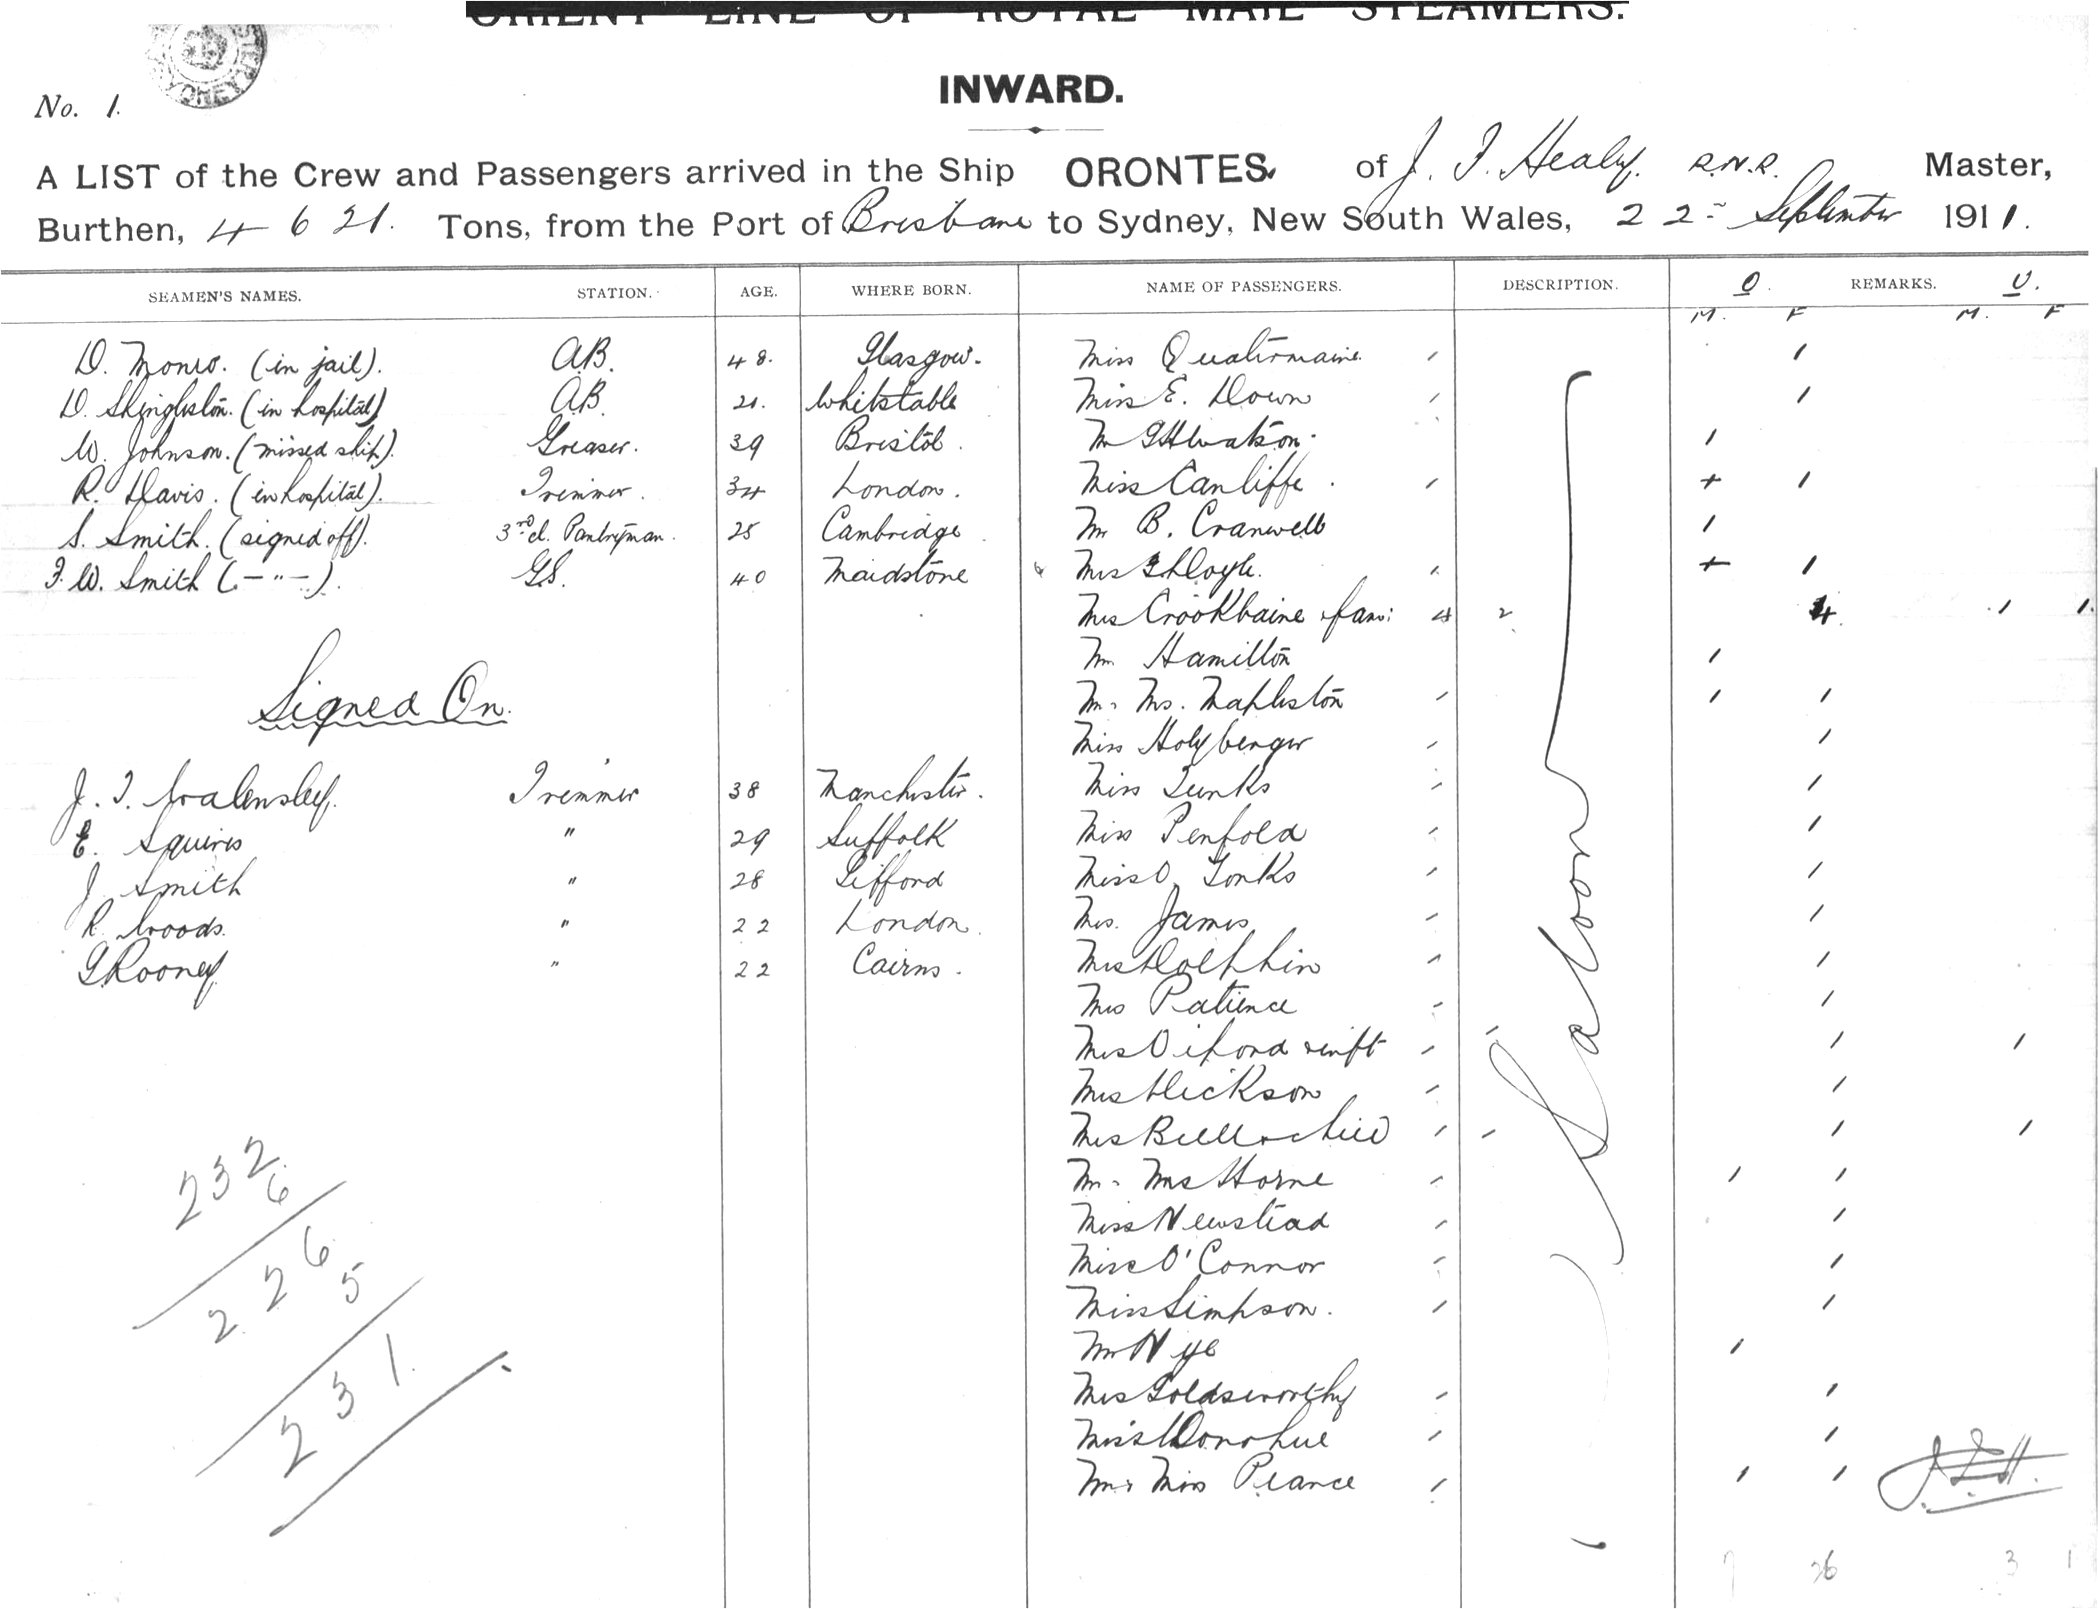 ORIENT LINE OF ROYAL MAIL STEAMERS.
INWARD.
No. 1.
A LIST of the Crew and Passengers arrived in the Ship ORONTES of J. F. Healy. R.N.R. Master,
Burthen, 4621. Tons, from the Port of Brisbane to Sydney, New South Wales, 22nd September 1911.
SEAMEN'S NAMES. STATION. AGE. WHERE BORN. NAME OF PASSENGERS. DESCRIPTION. O. REMARKS. U.
M. F M. F
D. Monro. (in jail). A.B. 48. Glasgow. Miss Quatirmaine
D. Shingleston. (in hospital) A.B. 21. Whitstable Miss E. Down
W. Johnson. (missed ship). Greaser. 39 Bristol. Mr G H Watson.
R. Davis. (in hospital). Trimmer. 34 London. Miss Canliffe.
S. Smith. (signed off). 3rd cl. Pantryman. 25 Cambridge. Mr B. Cranwell
F. W. Smith (-"-). G.S. 40 Maidstone Mrs Doyle.
Mrs fam: 4 2 4 1 1
Mr. Hamilton
Signed On. Mr. Mrs. Mapleston
Miss Holyberger
J. T. Walensley. Trimmer 38 Manchester. Miss Tunks
E. Squires " 29 Suffolk Miss Penfold
J Smith " 28 Gifford Miss O. Tonks
R. Woods. " 22 London. Mrs. James
G Rooney " 22 Cairns. Mrs Dolphin
Mrs Patience
Mrs inft
Mrs Dickson
Mrs Bell & child
Saloon
Mr. Mrs Horne
Miss Newstead
Miss O'Connor
Miss Simpson.
Mr Nye
Mrs Goldsworthy
Miss Donohue
Mr. Miss Pearce
J.F.H.
232
6
226
5
231
7 26 3 1